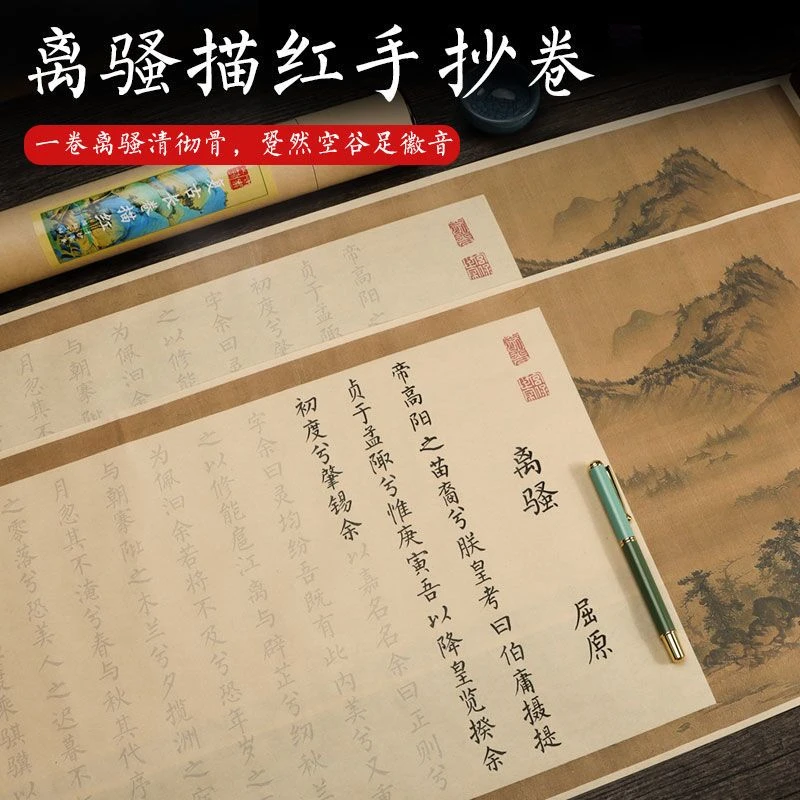 离骚描红手抄卷
一卷离骚清彻骨，跫然空谷足徽音
复古长卷描红
帝高阳之
贞于孟陬
初度兮肇
字余曰灵
之以修能
为佩汩余
与朝搴阰
月忽其不
离骚
屈原
帝高阳之苗裔兮朕皇考曰伯庸摄提
贞于孟陬兮惟庚寅吾以降皇览揆余
初度兮肇锡余以嘉名名余曰正则兮
字余曰灵均纷吾既有此内美兮又重
之以修能扈江离与辟芷兮纫秋
为佩汩余若将不及兮恐年岁之
与朝搴阰之木兰兮夕揽洲之
月忽其不淹兮春与秋其代序
之零落兮恐美人之迟暮不
度乘骐骥以